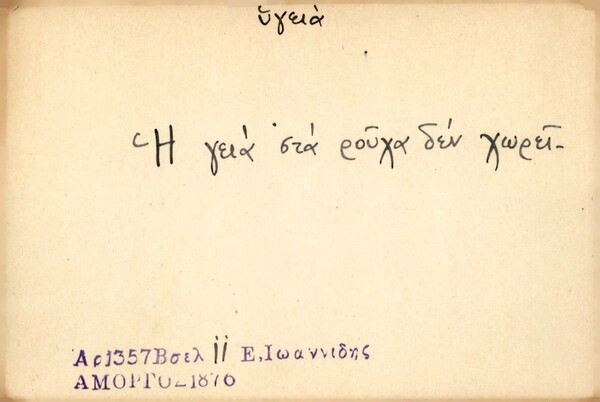 ὑγειά
Ἡ γειά 'στά ροῦχα δέν χωρεῖ-
Αρ1357Βσελ 11 Ε,Ιωαννιδης
ΑΜΟΡΓΟΣ1876